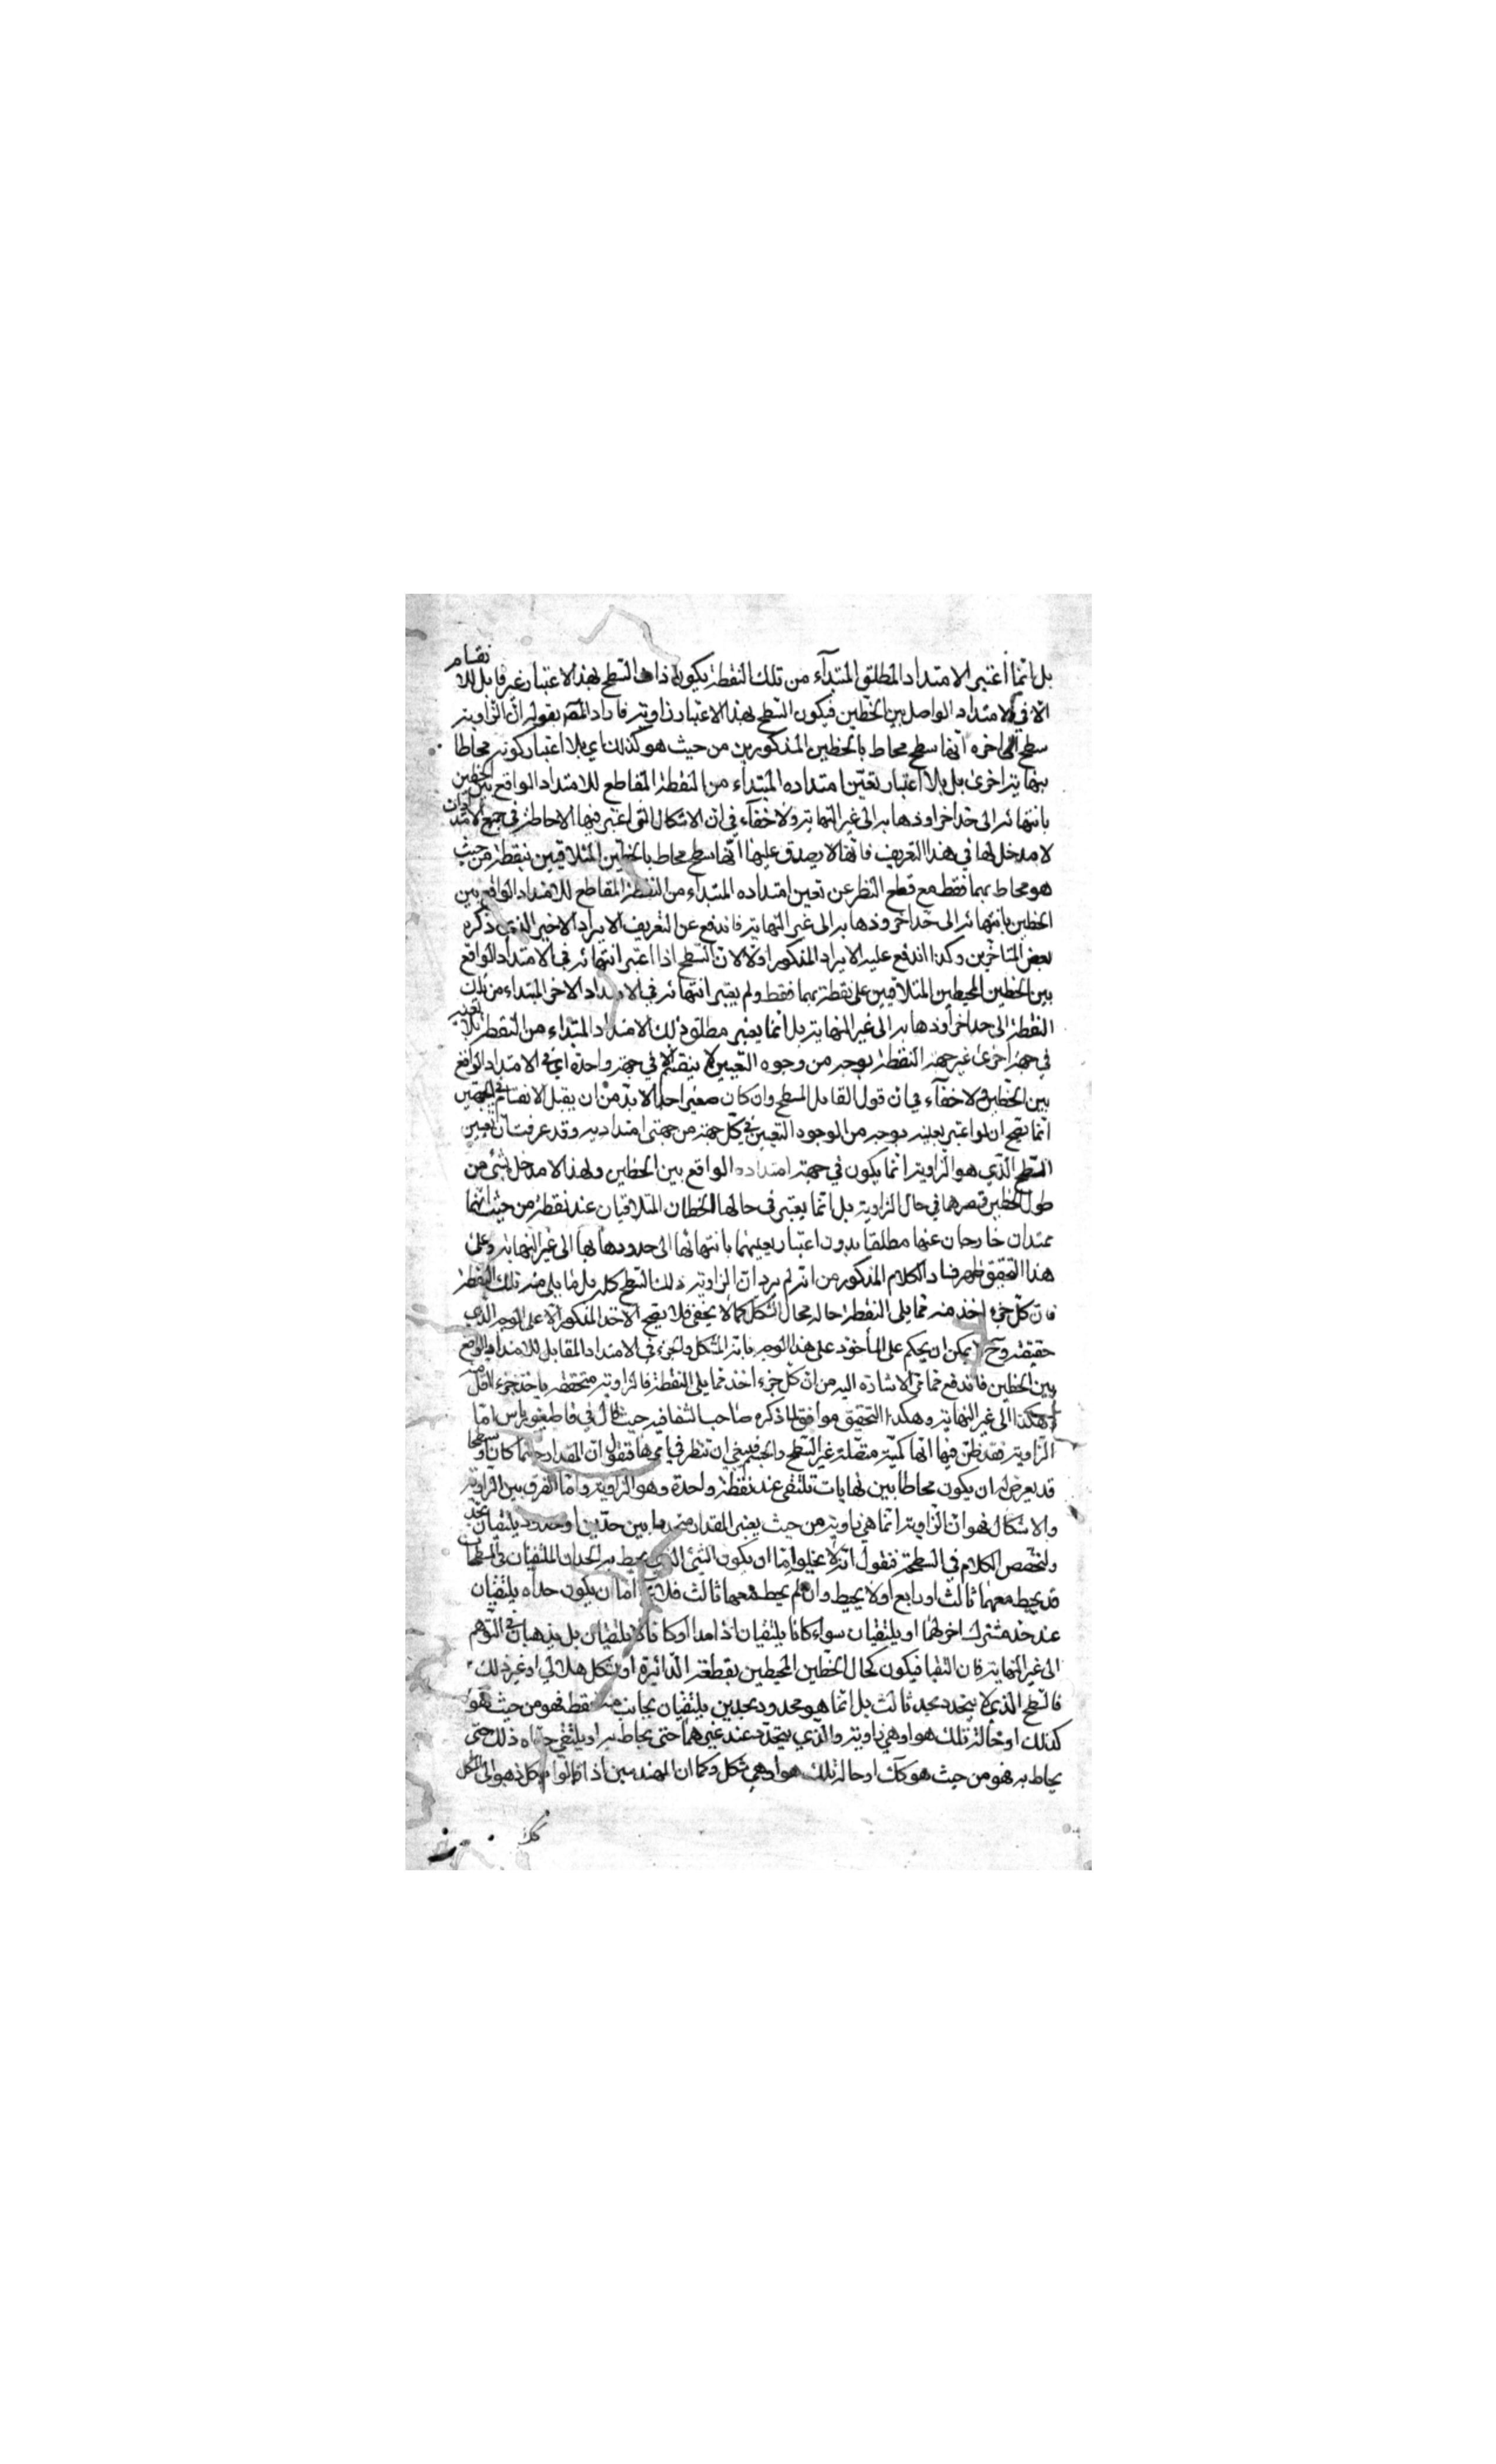 بل انما اعتبر الامتداد المطلق المبتدأء من تلك النقطة يكون ذات السطح بهذا الاعتبار غير قابل للانقسام
الا في الامتداد الواصل بين الخطين فيكون السطح بهذا الاعتبار زاوية فاراد المصـ بقوله ان الزاوية
سطح الى اخره انها سطح محاط بالخطين المذكورين من حيث هو كذلك اي بلا اعتبار كونه محاطا
بنهاية اخرى بل بلا اعتبار تعين امتداده المبتداء من النقطة المقاطع للامتداد الواقع بين الخطين
بانتهائه الى حد اخر او ذهابه الى غير النهاية ولا خفاء في ان الاشكال التي اعتبر فيها الاحاطة في جميع الامتدادات
لا مدخل لها في هذا التعريف فانها لا يصدق عليها انها سطح محاط بالخطين المتلاقيين بنقطة من حيث
هو محاط بهما فقط مع قطع النظر عن تعين امتداده المبتداء من النقطة المقاطع للامتداد الواقع بين
الخطين بانتهائه الى حد اخر وذهابه الى غير النهاية فاندفع عن التعريف الايراد الاخير الذي ذكره
بعض المتاخرين وكذا اندفع عليه الايراد المذكور اولا لان السطح اذا اعتبر انتهائه في الامتداد الواقع
بين الخطين المحيطين المتلاقيين على نقطة بهما فقط ولم يعتبر انتهائه في الامتداد الاخر المبتداء من تلك
النقطة الى حد اخر او ذهابه الى غير النهاية بل انما يعتبر مطلق ذلك الامتداد المبتداء من النقطة بلا تعيين
في جهة اخرى غير جهة النقطة بوجه من وجوه التعيين لا ينقسم الا في جهة واحدة اي في الامتداد الواقع
بين الخطين ولا خفاء في ان قول القابل السطح وان كان صغيرا جدا لا بد من ان يقبل الانقسام في الجهتين
انما يصح ان لو اعتبر تعينه بوجه من الوجود التعيين في كل جهة من جهتي امتداديه وقد عرفت ان تعين
السطح الذي هو الزاوية انما يكون في جهة امتداده الواقع بين الخطين ولهذا لا مدخل لشئ من
طول الخطين وقصرهما في حال الزاوية بل انما يعتبر في حالها الخطان المتلاقيان عند نقطة من حيث انهما
ممتدان خارجان عنها مطلقا بدون اعتبار تعينهما بانتهائها الى حدود ذهابها الى غير النهاية وعلى
هذا التحقيق ظهر فساد الكلام المذكور من انه لم يرد ان الزاوية ذلك السطح كله بل ما يلي منه تلك النقطة
فان كل جزء اخذ منه مما يلى النقطة حاله كحال الكل كما لا يخفى فلا يصح الاخذ المذكور الا على الوجه الذي
حققته وح لا يمكن ان يحكم على المأخوذ على هذا الوجه بانه الكل والجزء في الامتداد المقابل للامتداد الواقع
بين الخطين فاندفع مما مر الاشارة اليه من ان كل جزء اخذ مما يلى النقطة فالزاوية متحققة باخذ جزء اقل منه
وهكذا الى غير النهاية وهكذا التحقيق موافق لما ذكره صاحب الشفا فيه حيث قال في قاطيغورياس اما
الزاوية فقد ظن فيها انها كمية متصلة غير السطح والجسم فينبغي ان تنظر في امرها فتقول ان المقدار جسما كان او سطحا
قد يعرض له ان يكون محاطا بين نهايات تلتقي عند نقطة واحدة وهو الزاوية واما الفرق بين الزاوية
والاشكال فهو ان الزاوية انما هي زاوية من حيث يعتبر المقدار متحددا بين حدين او حدود يلتقيان بحد
ولنخصص الكلام في السطحية فنقول انه لا يخلو اما ان يكون الشئ الذي يحيط به الحدان الملتقيان في السطحيات
قد يحيط معهما ثالث او رابع او لا يحيط وان لم يحيط معهما ثالث فلا اما ان يكون حداه يلتقيان
عند حد مشترك اخر لهما او يلتقيان سواء كانا يلتقيان اذا مدا او كانا لا يلتقيان بل يذهبان في التوهم
الى غير النهاية فان التقيا فيكون كحال الخطين المحيطين بقطعة الدائرة او شكل هلالي او غير ذلك
فالسطح الذي لا يتحدد بحد ثالث بل انما هو محدود بحدين يلتقيان بجانب منه فقط فهو من حيث هو
كذلك او حالة تلك هو او هي زاوية والذي يتحدد عند غيرهما حتى يحاط به او يلتقي حداه ذلك حتى
يحاط به فهو من حيث هو كك او حالة تلك هو او هي شكل وكما ان المهندسين اذا قالوا
كك